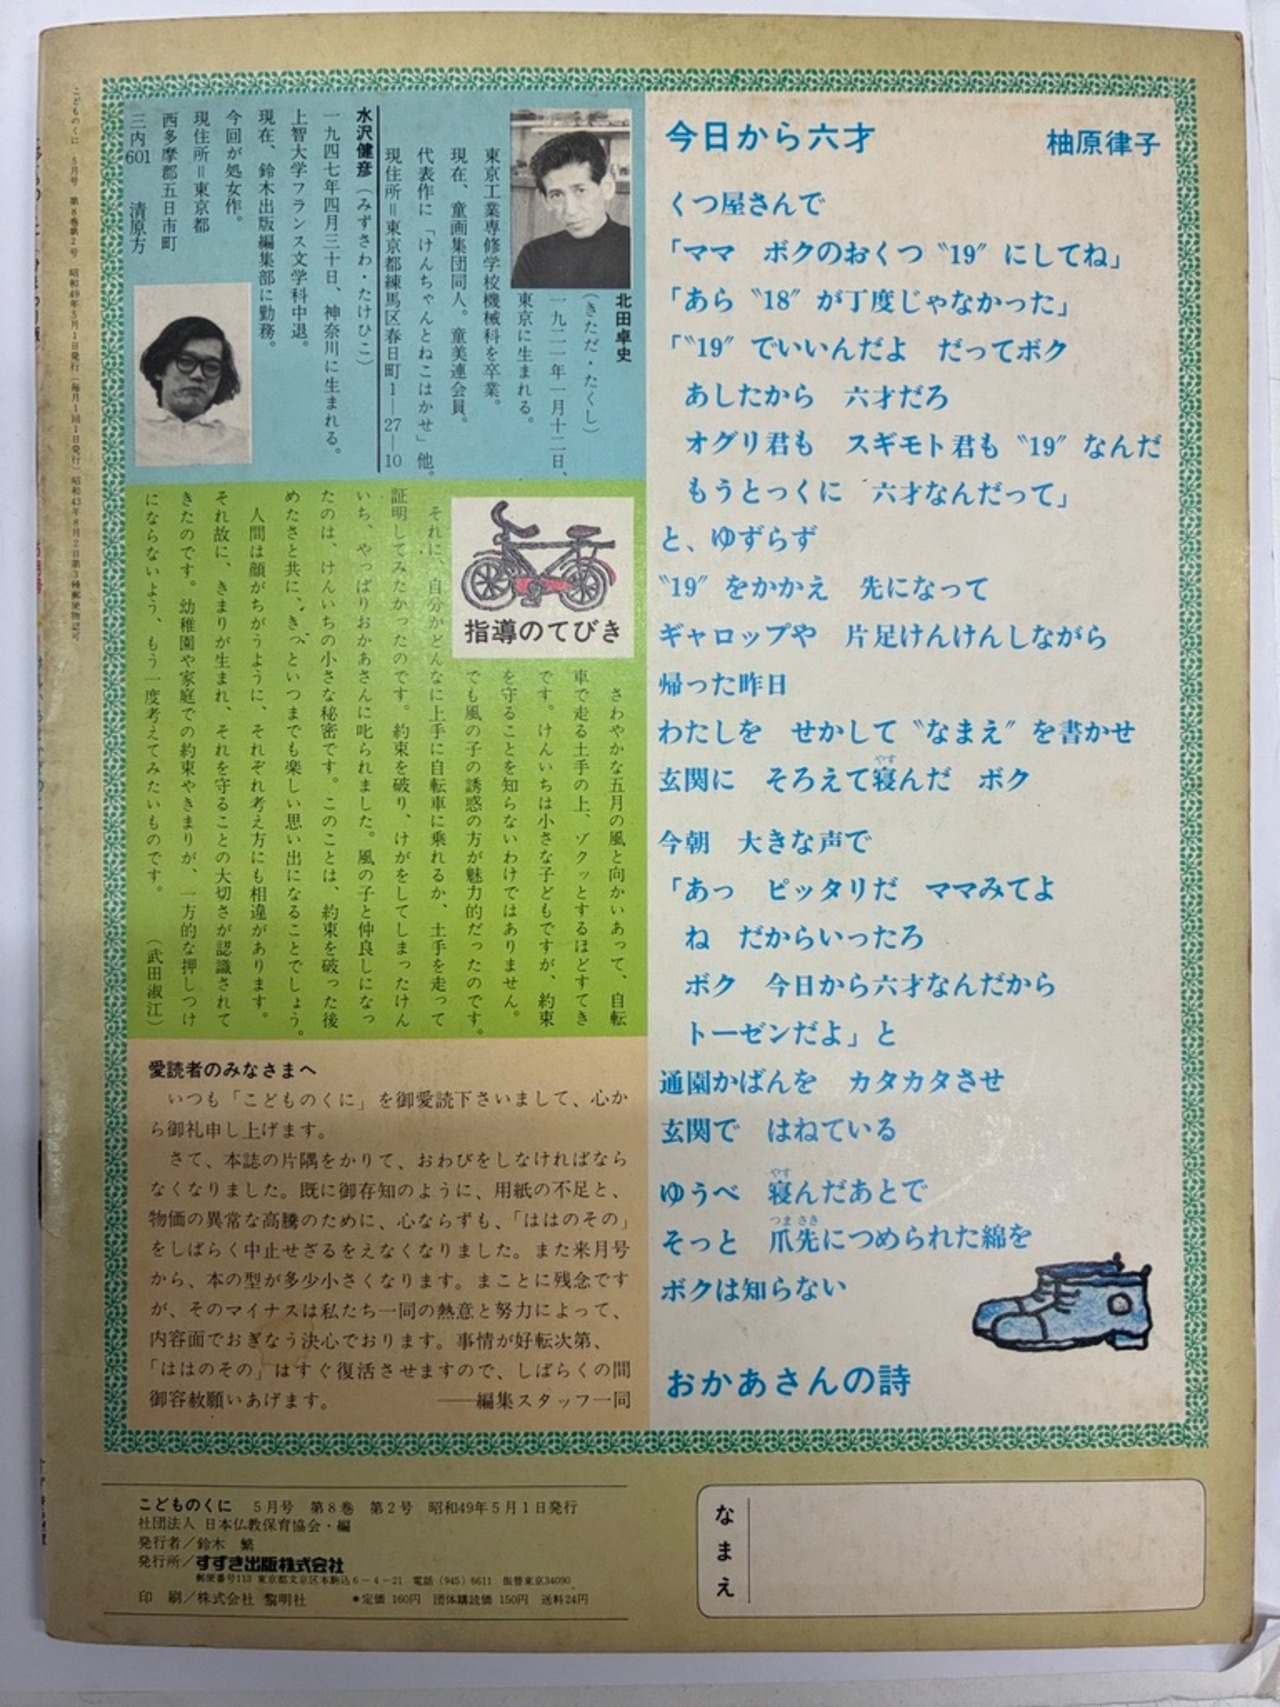 こどものくに 5月号 第8巻第2号 昭和49年5月1日発行(毎月1回1日発行)昭和43年8月2日第3種郵便物認可
今日から六才 柚原律子
くつ屋さんで
「ママ ボクのおくつ〝19〟にしてね」
「あら〝18〟が丁度じゃなかった」
「〝19〟でいいんだよ だってボク
あしたから 六才だろ
オグリ君も スギモト君も〝19〟なんだ
もうとっくに 六才なんだって」
と、ゆずらず
〝19〟をかかえ 先になって
ギャロップや 片足けんけんしながら
帰った昨日
わたしを せかして〝なまえ〟を書かせ
玄関に そろえて寝んだ ボク
やす
今朝 大きな声で
「あっ ピッタリだ ママみてよ
ね だからいったろ
ボク 今日から六才なんだから
トーゼンだよ」と
通園かばんを カタカタさせ
玄関で はねている
ゆうべ 寝んだあとで
やす
そっと 爪先につめられた綿を
つま さき
ボクは知らない
おかあさんの詩
北田卓史
(きただ・たくし)
一九二一年一月十二日、
東京に生まれる。
東京工業専修学校機械科を卒業。
現在、童画集団同人。童美連会員。
代表作に「けんちゃんとねこはかせ」他。
現住所=東京都練馬区春日町1—27—10
水沢健彦(みずさわ・たけひこ)
一九四七年四月三十日、神奈川に生まれる。
上智大学フランス文学科中退。
現在、鈴木出版編集部に勤務。
今回が処女作。
現住所=東京都
西多摩郡五日市町
三内601 清原方
指導のてびき
さわやかな五月の風と向かいあって、自転
車で走る土手の上、ゾクッとするほどすてき
です。けんいちは小さな子どもですが、約束
を守ることを知らないわけではありません。
でも風の子の誘惑の方が魅力的だったのです。
それに、自分がどんなに上手に自転車に乗れるか、土手を走って
証明してみたかったのです。約束を破り、けがをしてしまったけん
いち、やっぱりおかあさんに叱られました。風の子と仲良しになっ
たのは、けんいちの小さな秘密です。このことは、約束を破った後
めたさと共に、〝きっ〟といつまでも楽しい思い出になることでしょう。
人間は顔がちがうように、それぞれ考え方にも相違があります。
それ故に、きまりが生まれ、それを守ることの大切さが認識されて
きたのです。幼稚園や家庭での約束やきまりが、一方的な押しつけ
にならないよう、もう一度考えてみたいものです。 (武田淑江)
愛読者のみなさまへ
いつも「こどものくに」を御愛読下さいまして、心か
ら御礼申し上げます。
さて、本誌の片隅をかりて、おわびをしなければなら
なくなりました。既に御存知のように、用紙の不足と、
物価の異常な高騰のために、心ならずも、「ははのその」
をしばらく中止せざるをえなくなりました。また来月号
から、本の型が多少小さくなります。まことに残念です
が、そのマイナスは私たち一同の熱意と努力によって、
内容面でおぎなう決心でおります。事情が好転次第、
「ははのその」はすぐ復活させますので、しばらくの間
御容赦願いあげます。 ——編集スタッフ一同
こどものくに 5月号 第8巻 第2号 昭和49年5月1日発行
社団法人 日本仏教保育協会・編
発行者/鈴木 繁
発行所/すずき出版株式会社
郵便番号113 東京都文京区本駒込6-4-21 電話(945)6611 振替東京34090
印 刷/株式会社 黎明社 *定価 160円 団体購読価 150円 送料24円
なまえ